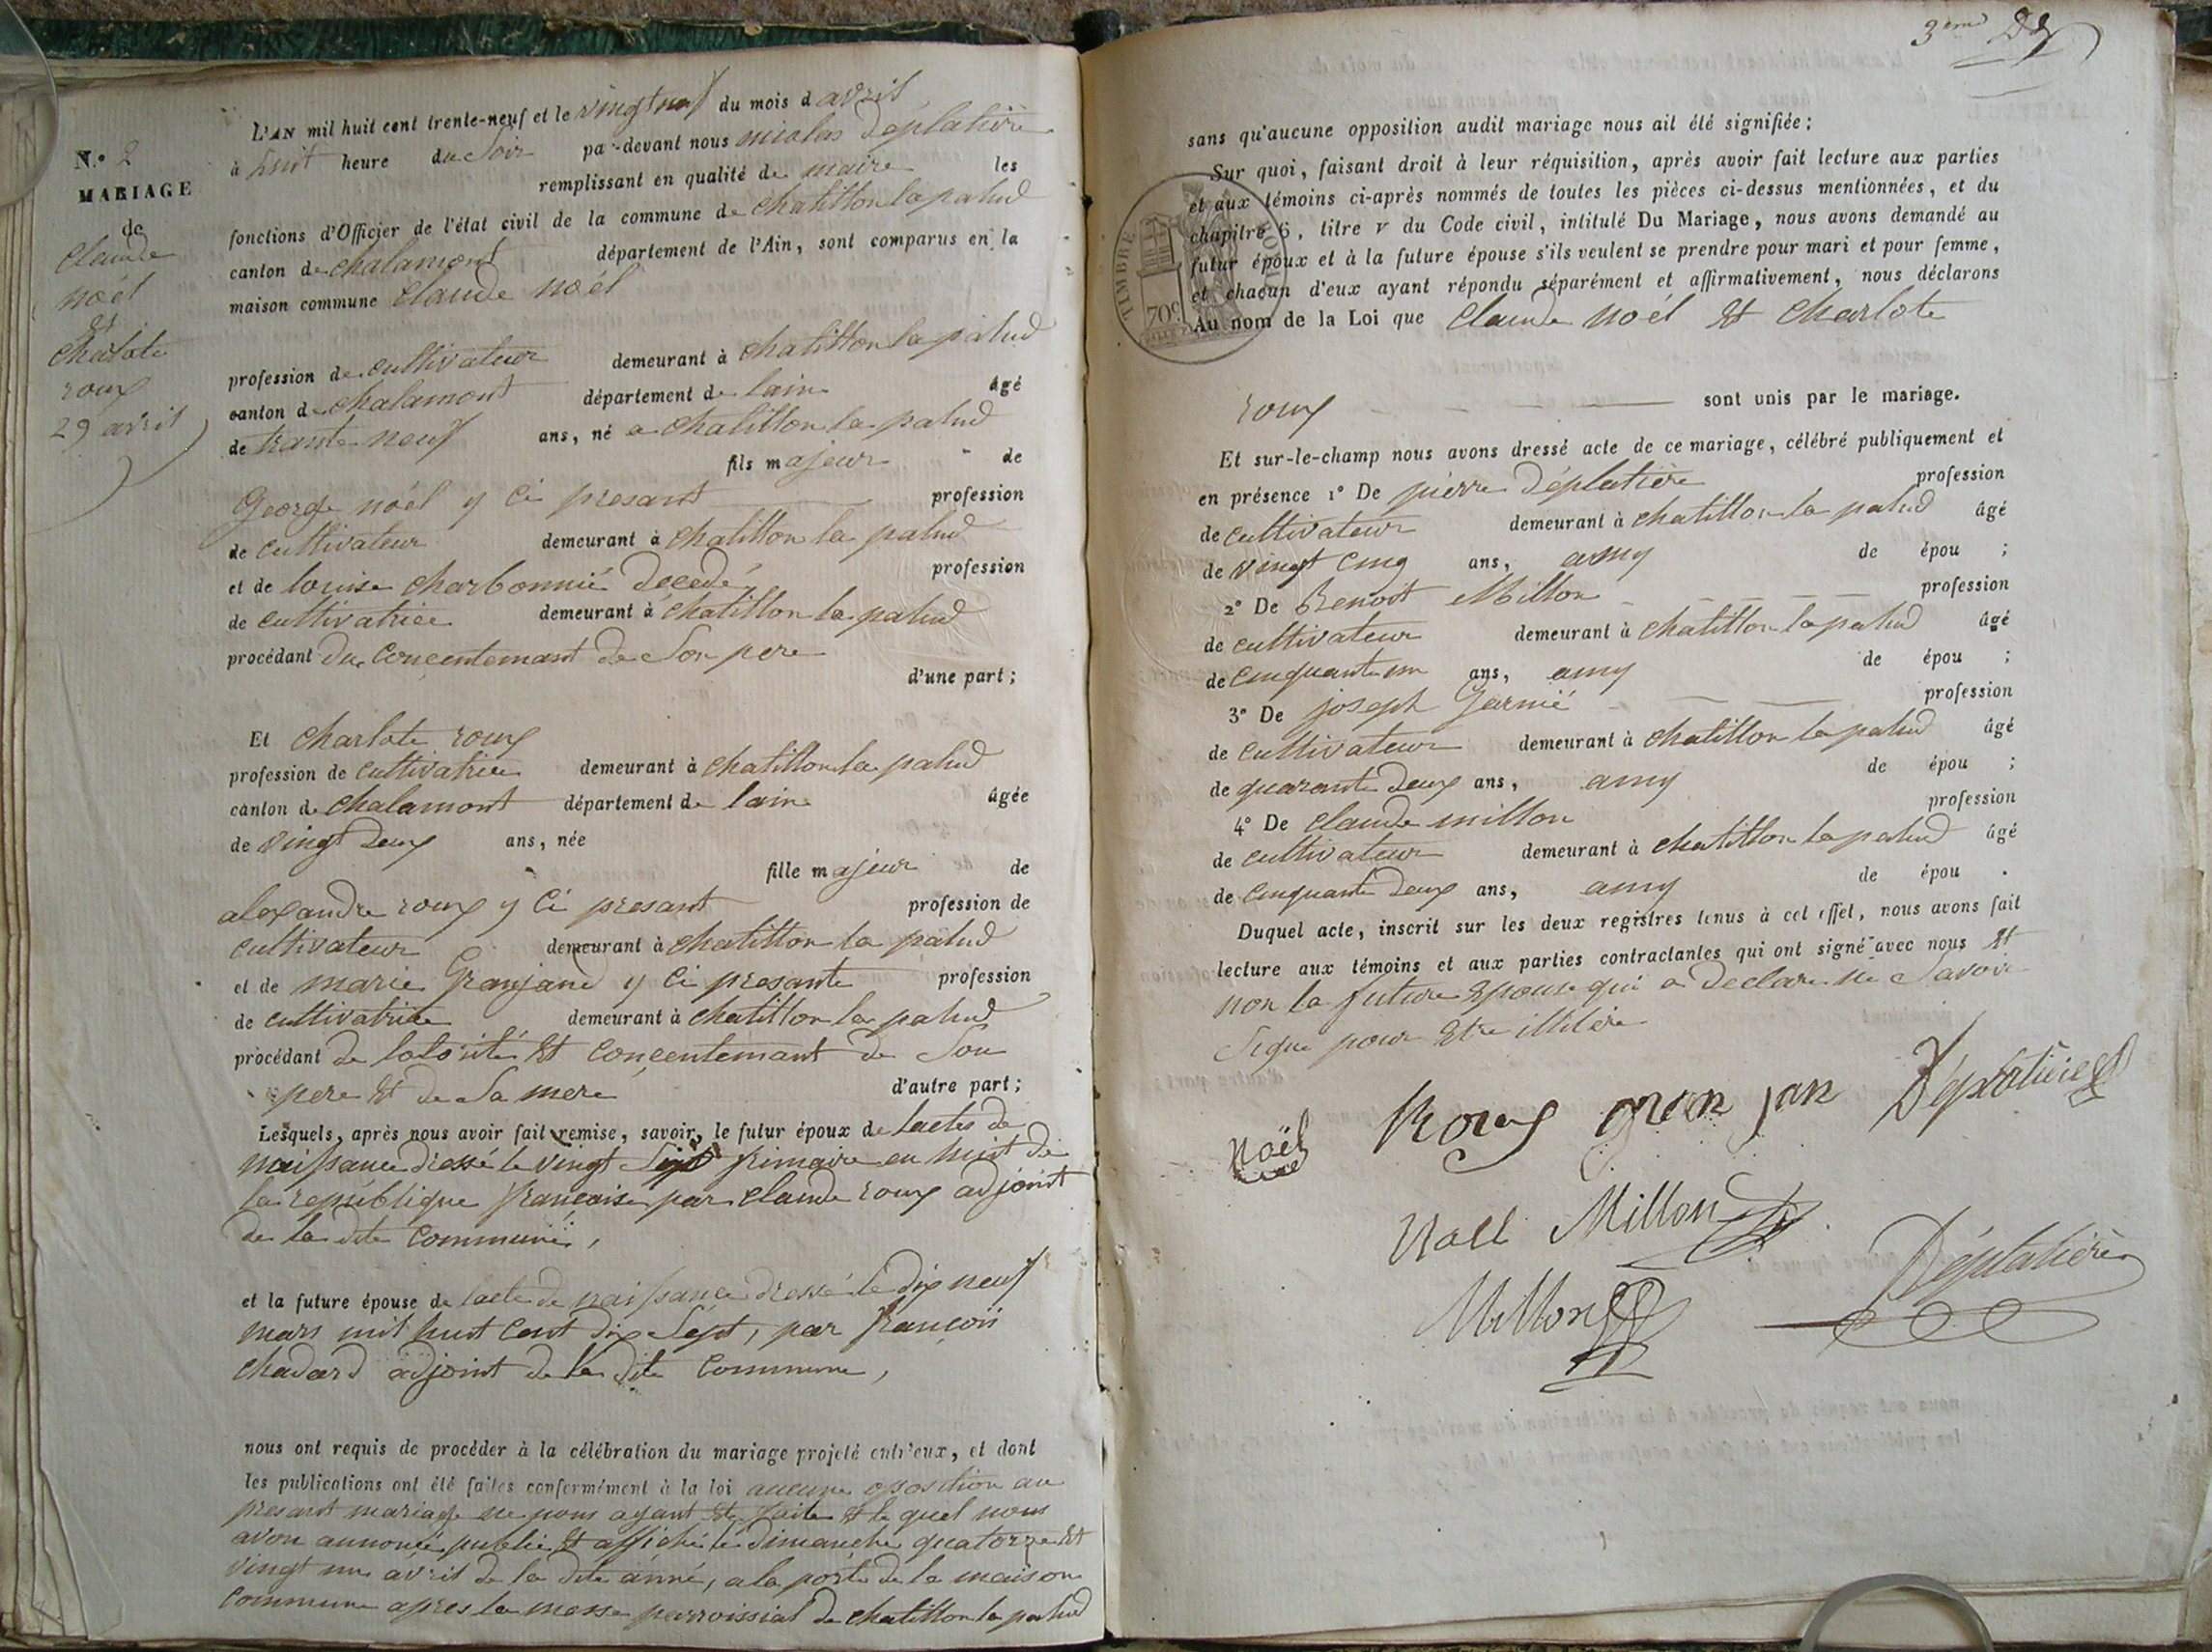 N.o 2
MARIAGE
de
Claude
noél
et
Charlote
roux
29 avril
L'AN mil huit cent trente-neuf et le vingt neuf du mois d avril
à huit heure du Soir par-devant nous nicolas Déplatière
remplissant en qualité de maire les
fonctions d'Officier de l'état civil de la commune de chatillon la palud
canton de chalamont département de l'Ain, sont comparus en la
maison commune Claude noél
profession de cultivateur demeurant à chatillon la palud
canton de chalamont département de lain âgé
de trante neuf ans, né a chatillon la palud
fils majeur de
George noél y ci presant profession
de cultivateur demeurant à chatillon la palud
et de louise charbonnié décedé profession
de cultivatrice demeurant à chatillon la palud
procédant du conçentemant de Son pere
d'une part;
Et charlote roux
profession de cultivatrice demeurant à chatillon la palud
canton de chalamont département de lain âgée
de vingt deux ans, née
fille majeur de
alexandre roux y ci presant profession de
cultivateur demeurant à chatillon la palud
et de marie Granjand y ci presante profession
de cultivatrice demeurant à chatillon la palud
procédant de lotorité et conçentemant de Son
pere et de Sa mere d'autre part;
Lesquels, après nous avoir fait remise, savoir, le futur époux de lactes de
naissance dressé le vingt Sept frimaire en huit de
la republique francaise par claude roux adjoint
de la dite commune,
et la future épouse de lacte de naissance dressé le dix neuf
mars mil huit cent dix Sept, par francois
chadard adjoint de la dite commune,
nous ont requis de procéder à la célébration du mariage projeté entr'eux, et dont
les publications ont été faites conformément à la loi aucune oposition au
presant mariage ne nous ayant été faite et le quel nous
avon annoncé publié et affiché le dimanche quatorze et
vingt un avril de la dite anné, a la porte de la maison
commune apres la messe parroissial de chatillon la palud
3eme
sans qu'aucune opposition audit mariage nous ait été signifiée;
Sur quoi, faisant droit à leur réquisition, après avoir fait lecture aux parties
et aux témoins ci-après nommés de toutes les pièces ci-dessus mentionnées, et du
chapitre 6, titre v du Code civil, intitulé Du Mariage, nous avons demandé au
futur époux et à la future épouse s'ils veulent se prendre pour mari et pour femme,
et chacun d'eux ayant répondu séparément et affirmativement, nous déclarons
Au nom de la Loi que Claude noél et Charlote
TIMBRE ROYAL
70c
roux sont unis par le mariage.
Et sur-le-champ nous avons dressé acte de ce mariage, célébré publiquement et
en présence 1° De pierre Déplatière profession
de cultivateur demeurant à chatillon la palud âgé
de vingt cinq ans, amy de épou ;
2° De Benoit Millon profession
de cultivateur demeurant à chatillon la palud âgé
de cinquante un ans, amy de épou ;
3° De joseph Garnié profession
de cultivateur demeurant à chatillon la palud âgé
de quarante deux ans, amy de épou ;
4° De claude millon profession
de cultivateur demeurant à chatillon la palud âgé
de cinquante deux ans, amy de épou .
Duquel acte, inscrit sur les deux registres tenus à cet effet, nous avons fait
lecture aux témoins et aux parties contractantes qui ont signé avec nous et
non la future Epouse qui a declare ne Savoir
Signe pour Etre illitére
noël Roux gran jan Déplatière
Noell Millon
Millon Déplatière